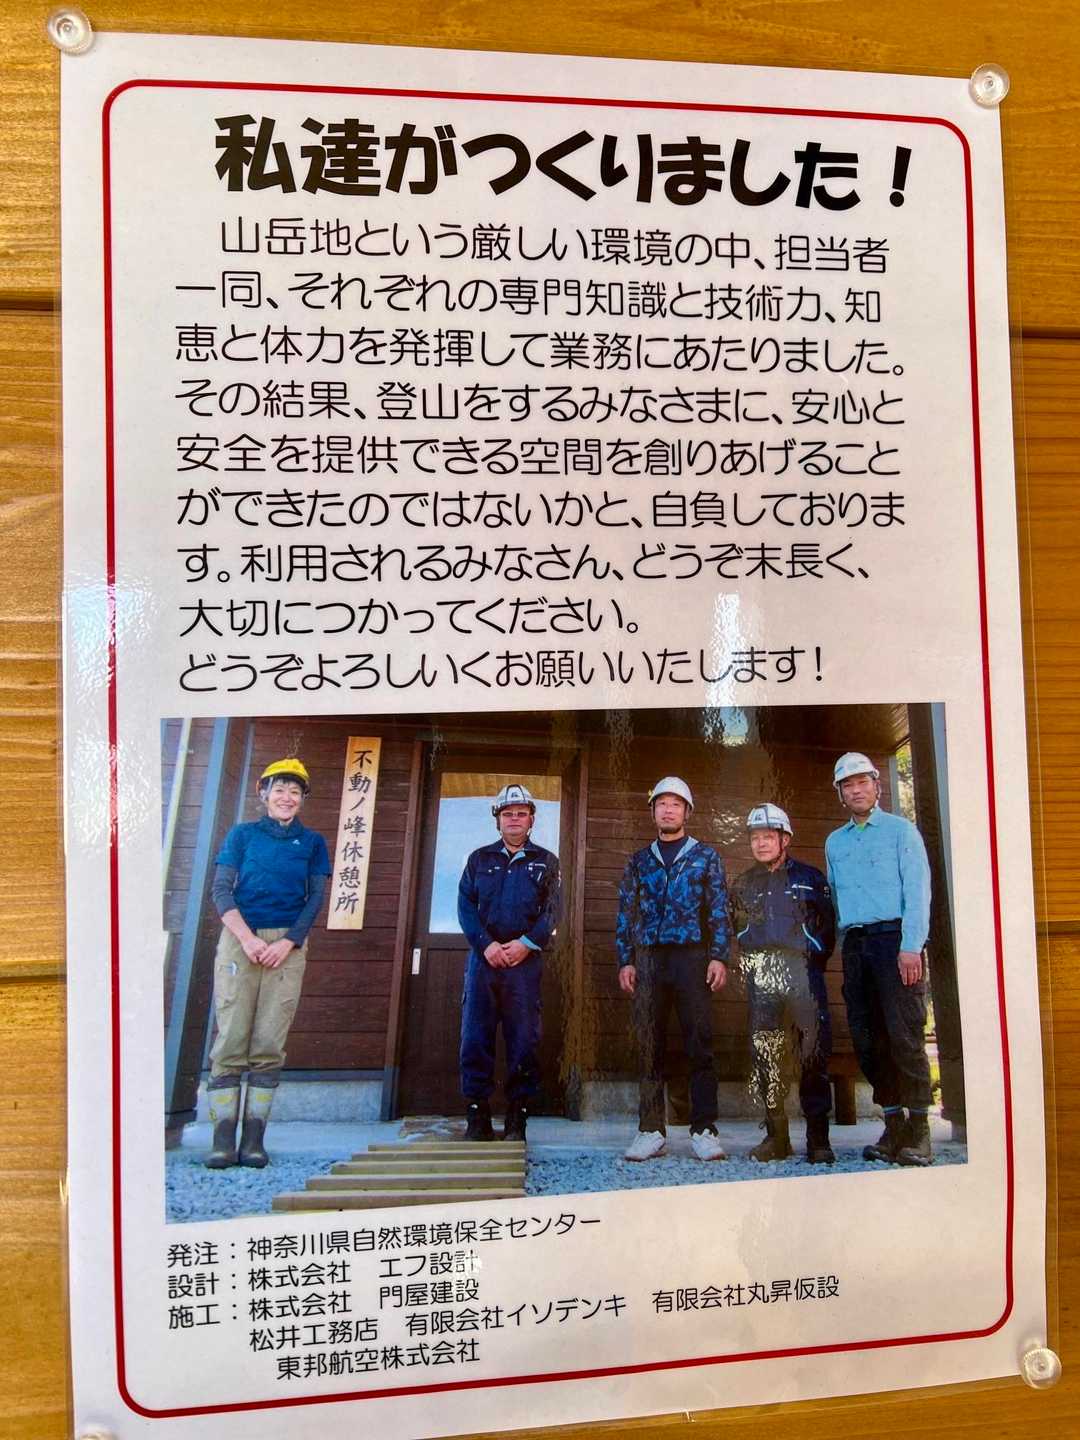 私達がつくりました！
山岳地という厳しい環境の中、担当者
一同、それぞれの専門知識と技術力、知
恵と体力を発揮して業務にあたりました。
その結果、登山をするみなさまに、安心と
安全を提供できる空間を創りあげること
ができたのではないかと、自負しておりま
す。利用されるみなさん、どうぞ末長く、
大切につかってください。
どうぞよろしいくお願いいたします！
不動ノ峰休憩所
発注：神奈川県自然環境保全センター
設計：株式会社　エフ設計
施工：株式会社　門屋建設
松井工務店　有限会社イソデンキ　有限会社丸昇仮設
東邦航空株式会社